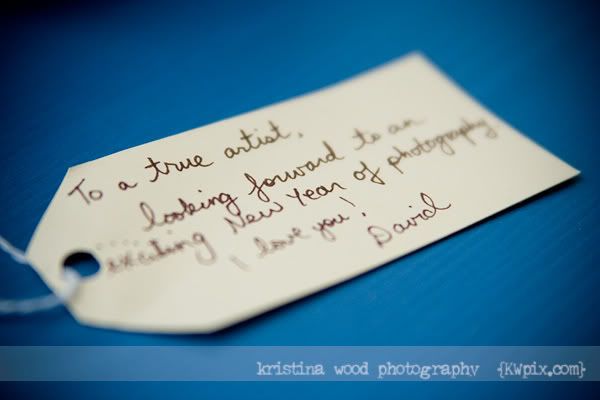 To a true artist,
looking forward to an
exciting New Year of photography
I love you!
David
kristina wood photography {KWpix.com}